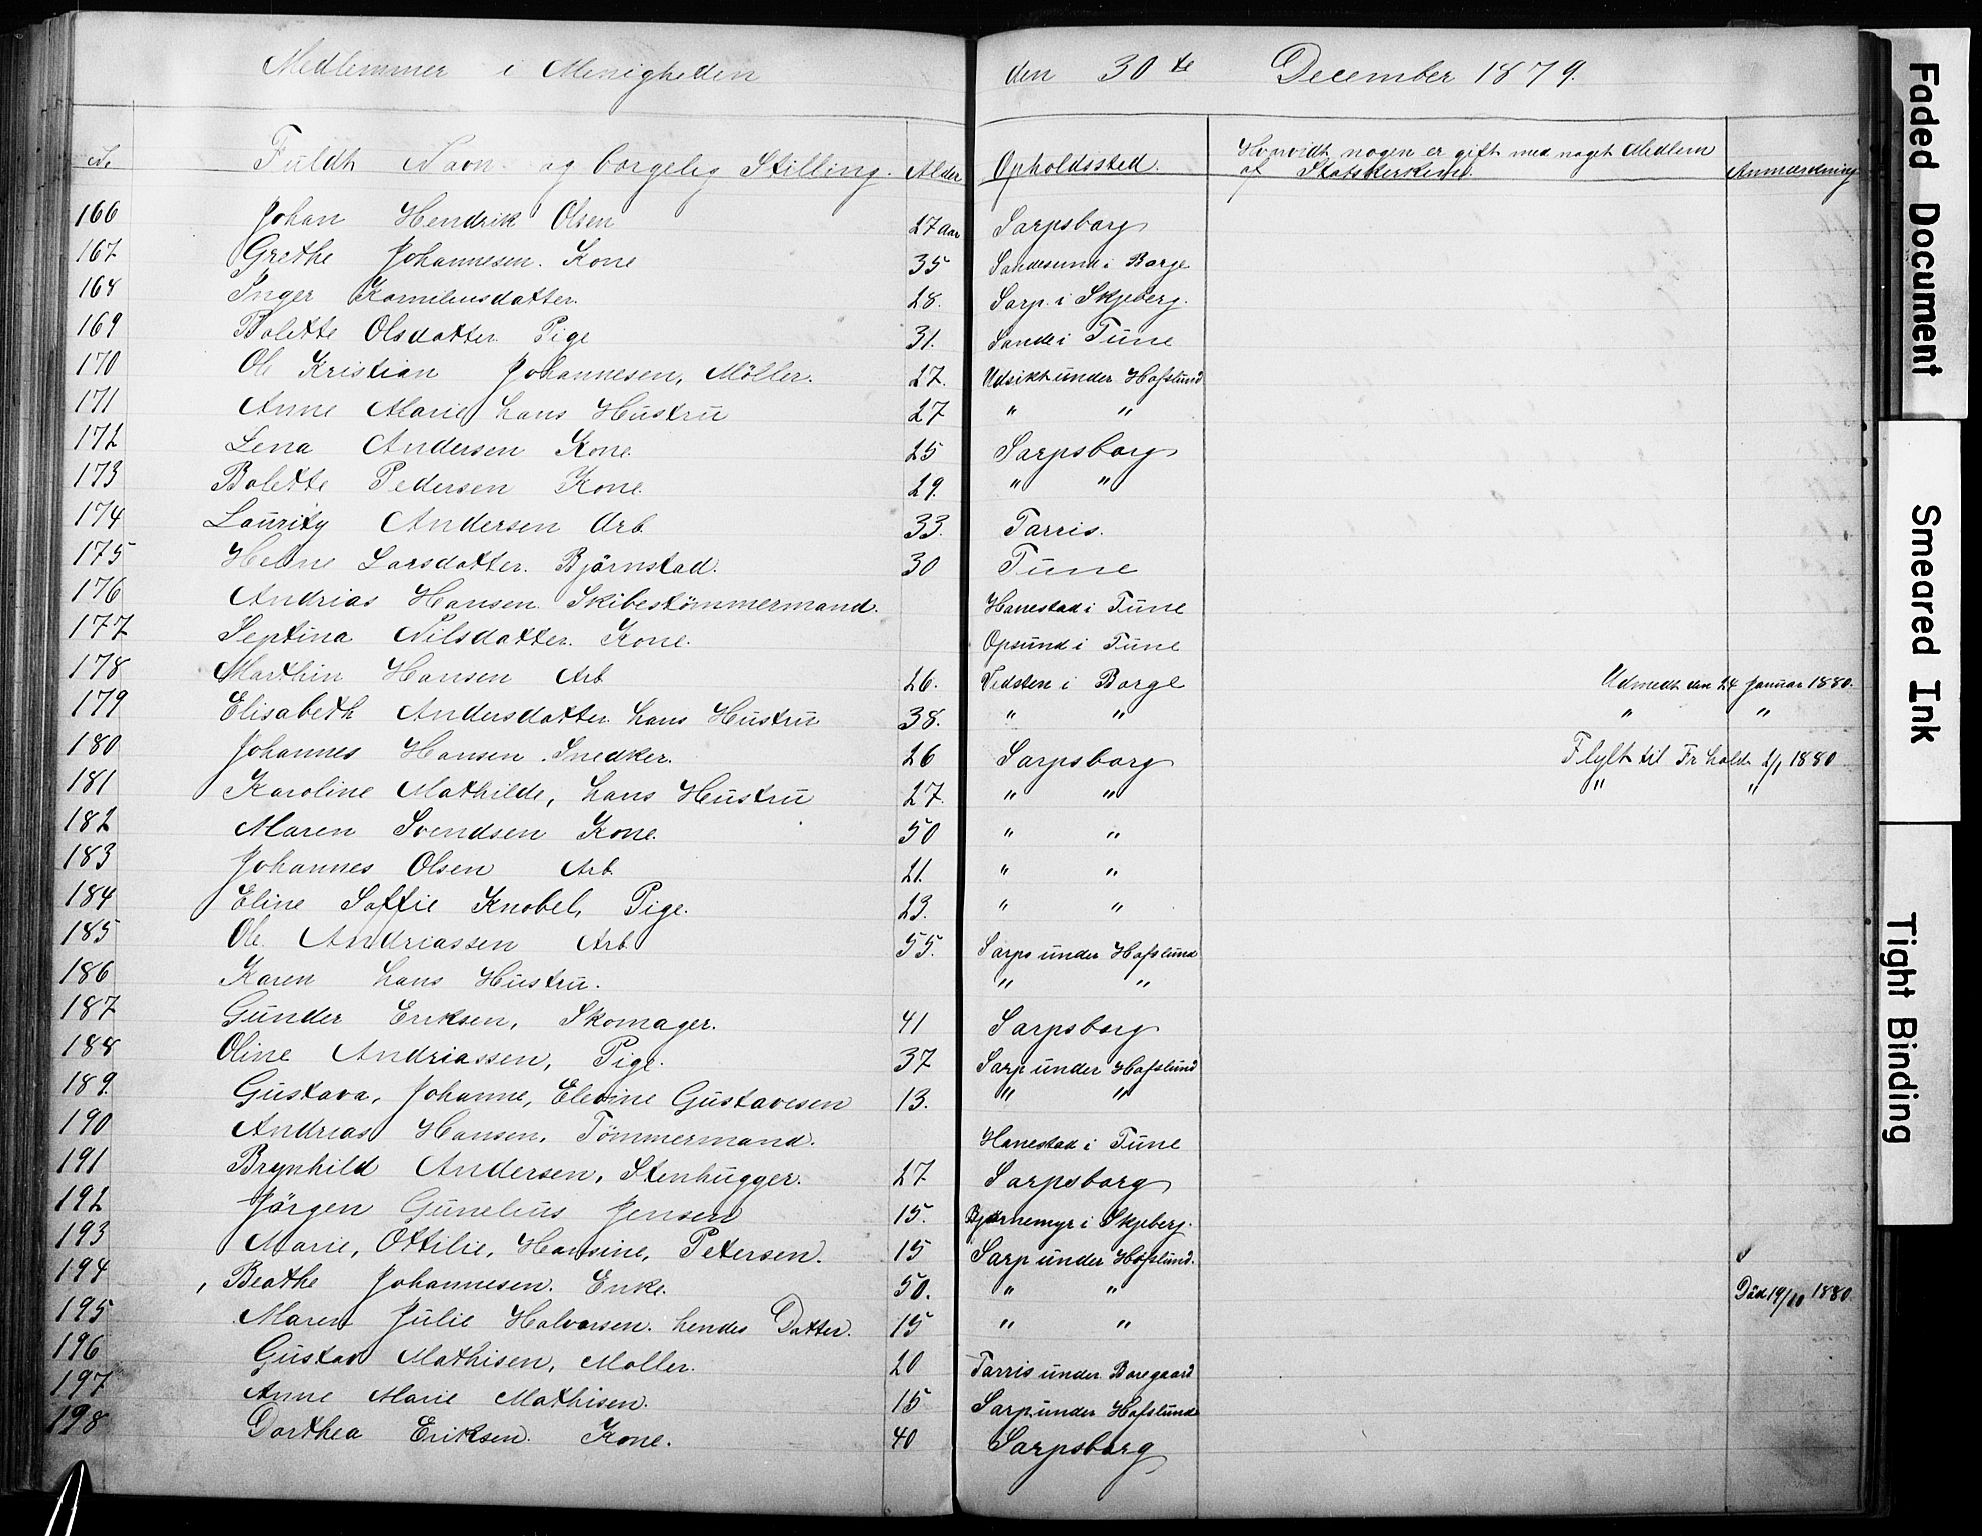 Medlemmer i Menigheden den 30te December 1879.
No Fuldt Navn og borgelig Stilling. Alder Opholdssted. Hvorvidt nogen er gift med noget Medlem af Statskirken. Anmærkning
166 Johan Hendrik Olsen 27 aar Sarpsborg
167 Grethe Johannesen. Kone 35 Sandesund i Borge
168 Inger Korniliusdatter. 28. Sarp. i Skjeberg.
169 Bolette Olsdatter. Pige 31. Sande i Tune
170 Ole Kristian Johannesen, Möller. 27. Udsikt under Hafslund
171 Anne Marie hans Hustru 27 " "
172 Lena Andersen Kone. 25 Sarpsborg
173 Bolette Pedersen Kone. 29. " "
174 Lauritz Andersen Arb. 33. Tarris.
175 Helene Larsdatter. Björnstad. 30 Tune
176 Andrias Hansen. Skibestömmermand. Hanestad i Tune
177 Septina Nilsdatter. Kone. Opsund i Tune
178 Marthin Hansen Arb 26. Vedsten i Borge Udmedt den 24 Januar 1880.
179 Elisabeth Andersdatter. hans Hustru 38. " " " "
180 Johannes Hansen. Snedker. 26 Sarpsborg Flylt til Fr hald 2/1 1880
181 Karoline Mathilde, hans Hustru 27. " " " "
182 Maren Svendsen Kone. 50 " "
183 Johannes Olsen Arb. 21. " "
184 Eline Soffie Knobel, Pige. 23. " "
185 Ole Andriassen Arb 55. Sarps under Hafslund
186 Karen hans Hustru. " "
187 Gunder Eriksen, Skomager. 41 Sarpsborg
188 Oline Andriassen, Pige. 37 Sarp under Hafslund
189. Gustava, Johanne, Elevine Gustavesen 13. " "
190 Andreas Hansen, Tömmermand. Hanestad i Tune
191 Brynhild Andersen, Stenhugger. 27 Sarpsborg
192 Jörgen Gunelius Jensen 15. Bjørnemyr i Skjeberg.
193 Marie, Ottilie, Hansine, Petersen. 15 Sarp under Hafslund.
194 Beathe Johannesen. Enke. 50. " " Död 19/10 1880.
195 Maren Julie Halvorsen. hendes Datter. 15 " "
196 Gustav Mathisen, Moller. 20 Tarris under Boregaard
197 Anne Marie Mathisen. 15 Sarp under Hafslund
198 Dorthea Eriksen. Kone. 40 Sarpsborg
Faded Document
Smeared Ink
Tight Binding